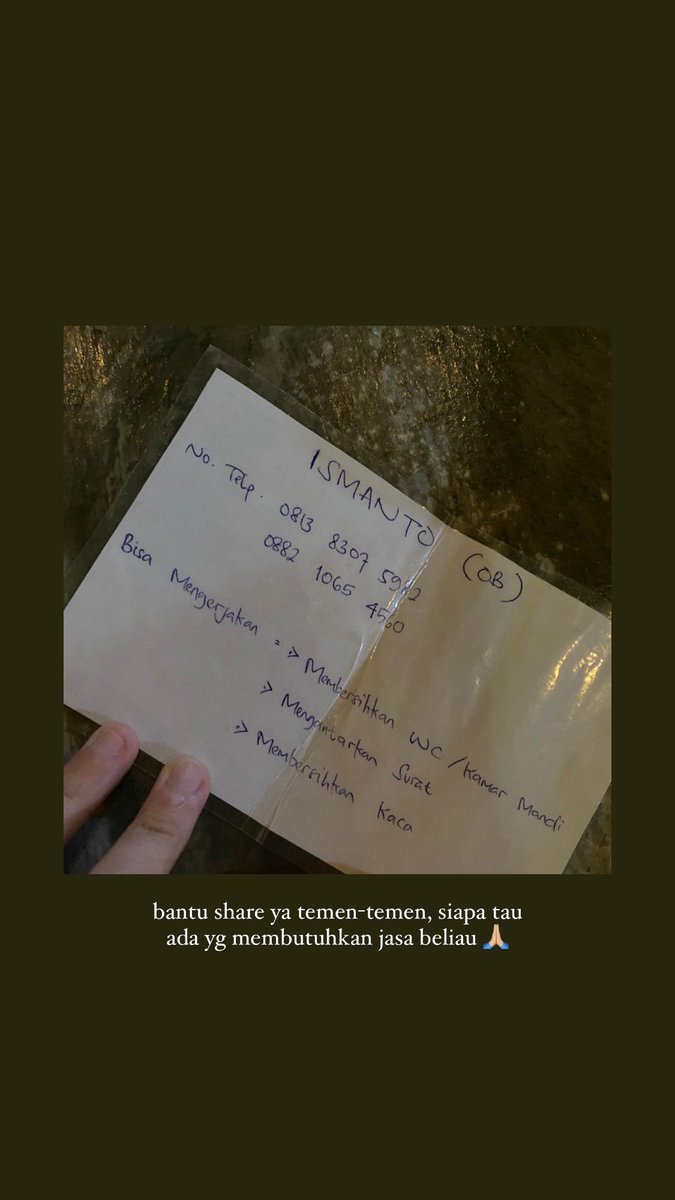 ISMANTO (OB)
No. Telp. 0813 8307 5982
0882 1065 4560
Bisa Mengerjakan : => Membersihkan WC / Kamar Mandi
=> Mengantarkan Surat
=> Membersihkan Kaca
bantu share ya temen-temen, siapa tau
ada yg membutuhkan jasa beliau 🙏🏻